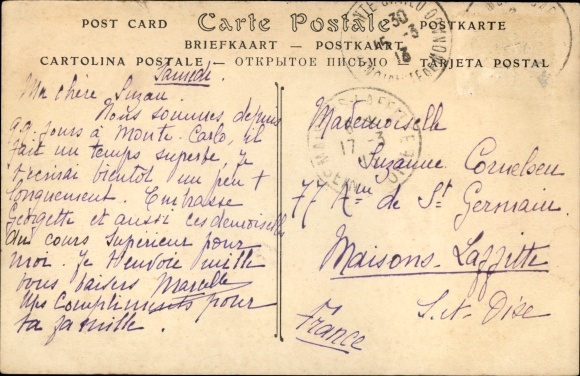 POST CARD Carte Postale POSTKARTE
BRIEFKAART - POSTKAART
CARTOLINA POSTALE - ОТКРЫТОЕ ПИСЬМО - TARJETA POSTAL
Samedi
Ma chère Suzan
Nous sommes depuis
qq. jours à Monte-Carlo, il
fait un temps superbe, je
t'écrirai bientôt un peu +
longuement. Embrasse
Georgette et aussi ces demoiselles
du cours Supérieur pour
moi. Je t'envoie mille
bons baisers Marcelle
Mes compliments pour
ta famille.
Mademoiselle
Suzanne Cornelsen
77 de St Germain
Maisons-Laffitte
S.-Oise
France
17 -3